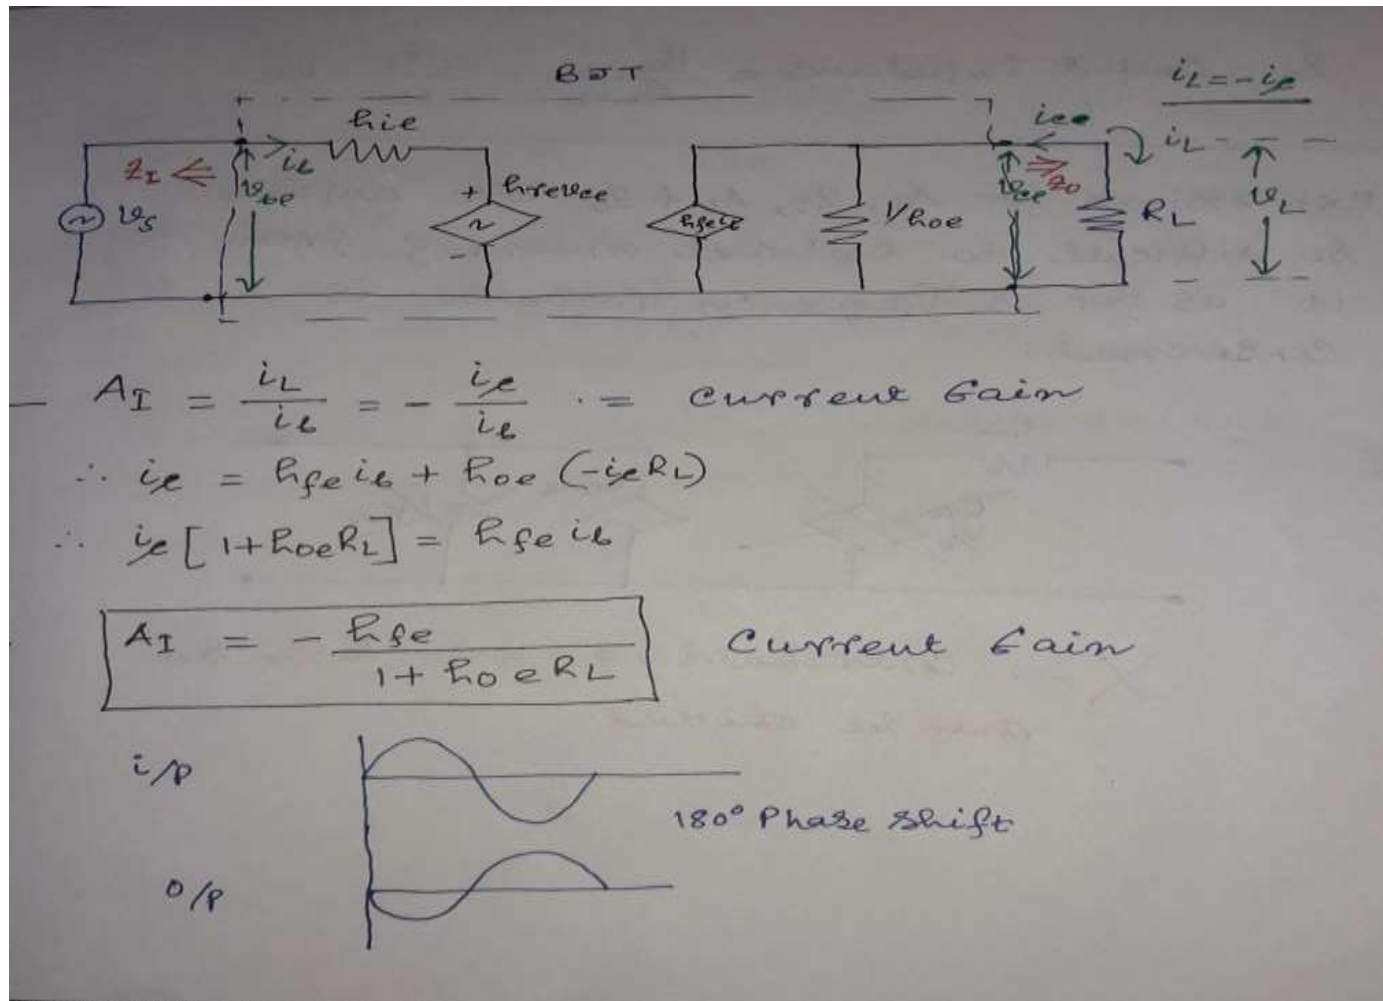 BJT
iL = -ic
hie
ice
iL
ZI
ib
vbe
+
hrevce
-
vs
hfeib
1/hoe
vce
Zo
RL
vL
AI = iL/ib = - ic/ib . = Current Gain
∴ ic = hfe ib + hoe (-icRL)
∴ ic [1+hoeRL] = hfe ib
AI = - hfe/1+hoeRL Current Gain
i/p
180° Phase Shift
o/p